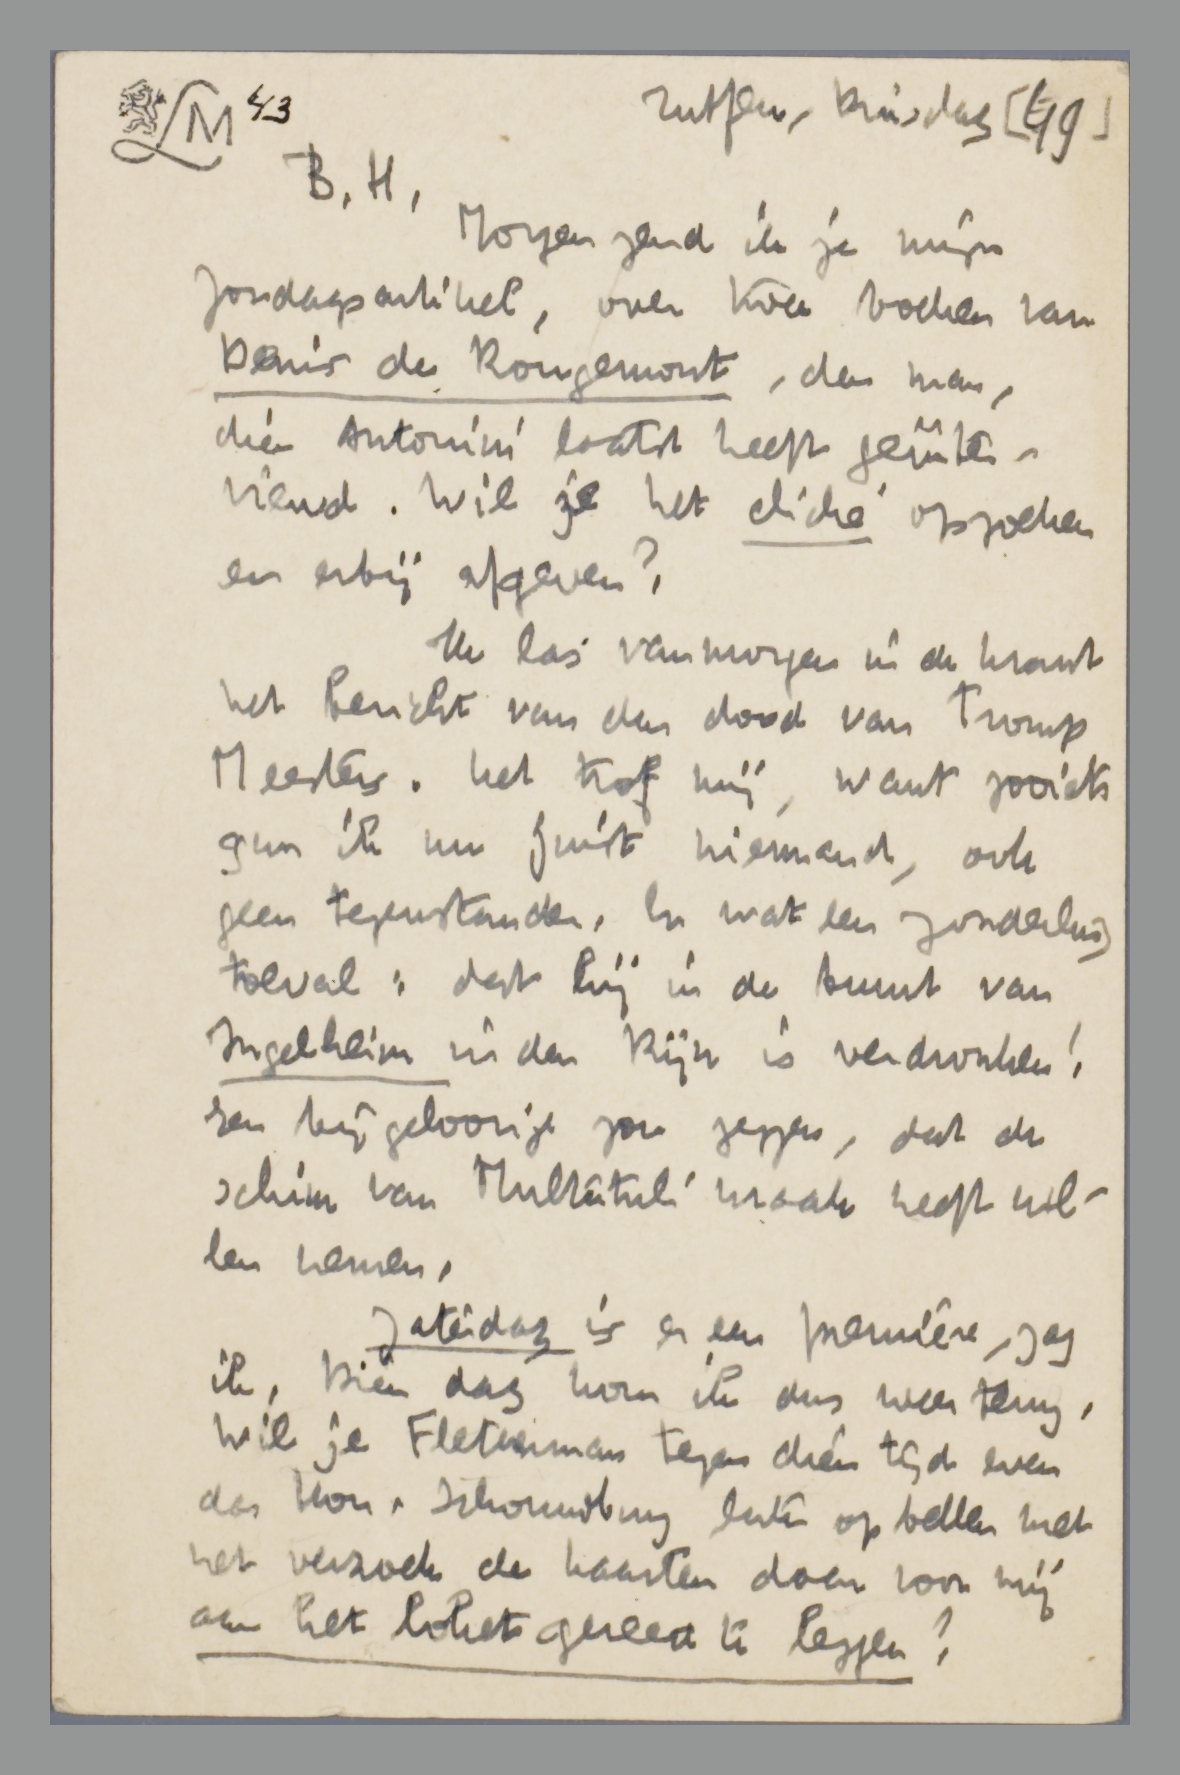 LM 43
Zutfen, Dinsdag [49]
B. H,
Morgen zend ik je mijn
zondagsartikel, over twee boeken van
Denis de Rougemont, den man,
dien Antonini laatst heeft geïnter-
viewd. Wil je het cliché opzoeken
en erbij afgeven?
Ik las vanmorgen in de krant
het bericht van den dood van Tromp
Meesters. Het trof mij, want zooiets
gun ik nu juist niemand, ook
geen tegenstander. En wat een zonderling
toeval: dat hij in de buurt van
Ingelheim in den Rijn is verdronken!
Een bijgeloovige zou zeggen, dat de
schim van Multatuli wraak heeft wil-
len nemen.
Zaterdag is er een première, zag
ik. Dien dag kom ik dus weer terug.
Wil je Fleterman tegen dien tijd even
den Kon. Schouwburg laten opbellen met
het verzoek de kaarten daar voor mij
aan het loket gereed te leggen?